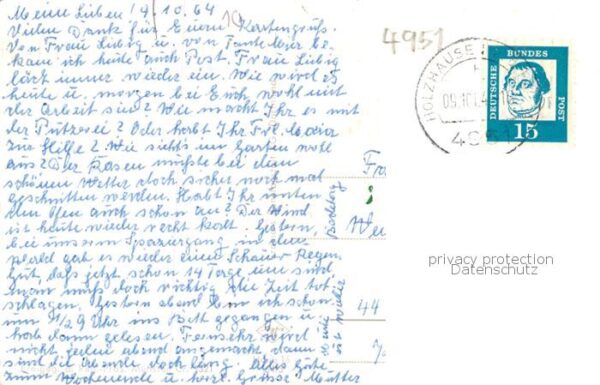 Meine Lieben! 9/10.64
Vielen Dank für Euern Kartengruß.
Von Frau Liebig u. von Tante Meier be-
kam ich heute auch Post. Frau Liebig
läßt immer wieder ein. Wie wird es
heute u. morgen bei Euch wohl mit
der Arbeit sein? Wie macht Ihr es mit
der Putzerei? Oder habt Ihr Frl.
zur Hilfe? Wie sieht's im Garten wohl
aus? Der Rasen müßte bei dem
schönen Wetter doch sicher noch mal
geschnitten werden. Habt Ihr unten
den Ofen auch schon an? Der Wind
ist heute wieder recht kalt. Gestern,
bei unserm Spaziergang in
gab es wieder einen Schauer Regen.
Gut, daß jetzt schon 14 Tage um sind,
man muß doch richtig die Zeit tot
schlagen. Gestern abend bin ich schon
um 1/2 9 Uhr ins Bett gegangen u.
hab dann gelesen. Fernsehn wird
nicht jeden abend angemacht, dann
sind die abende doch lang. Alles Gute
zum Wochenende u. herzl. Grüsse Mutter
10
4951
HOLZHAUSEN
09.10.64
4951
DEUTSCHE BUNDES POST
15
Fra
We
44
privacy protection
Datenschutz